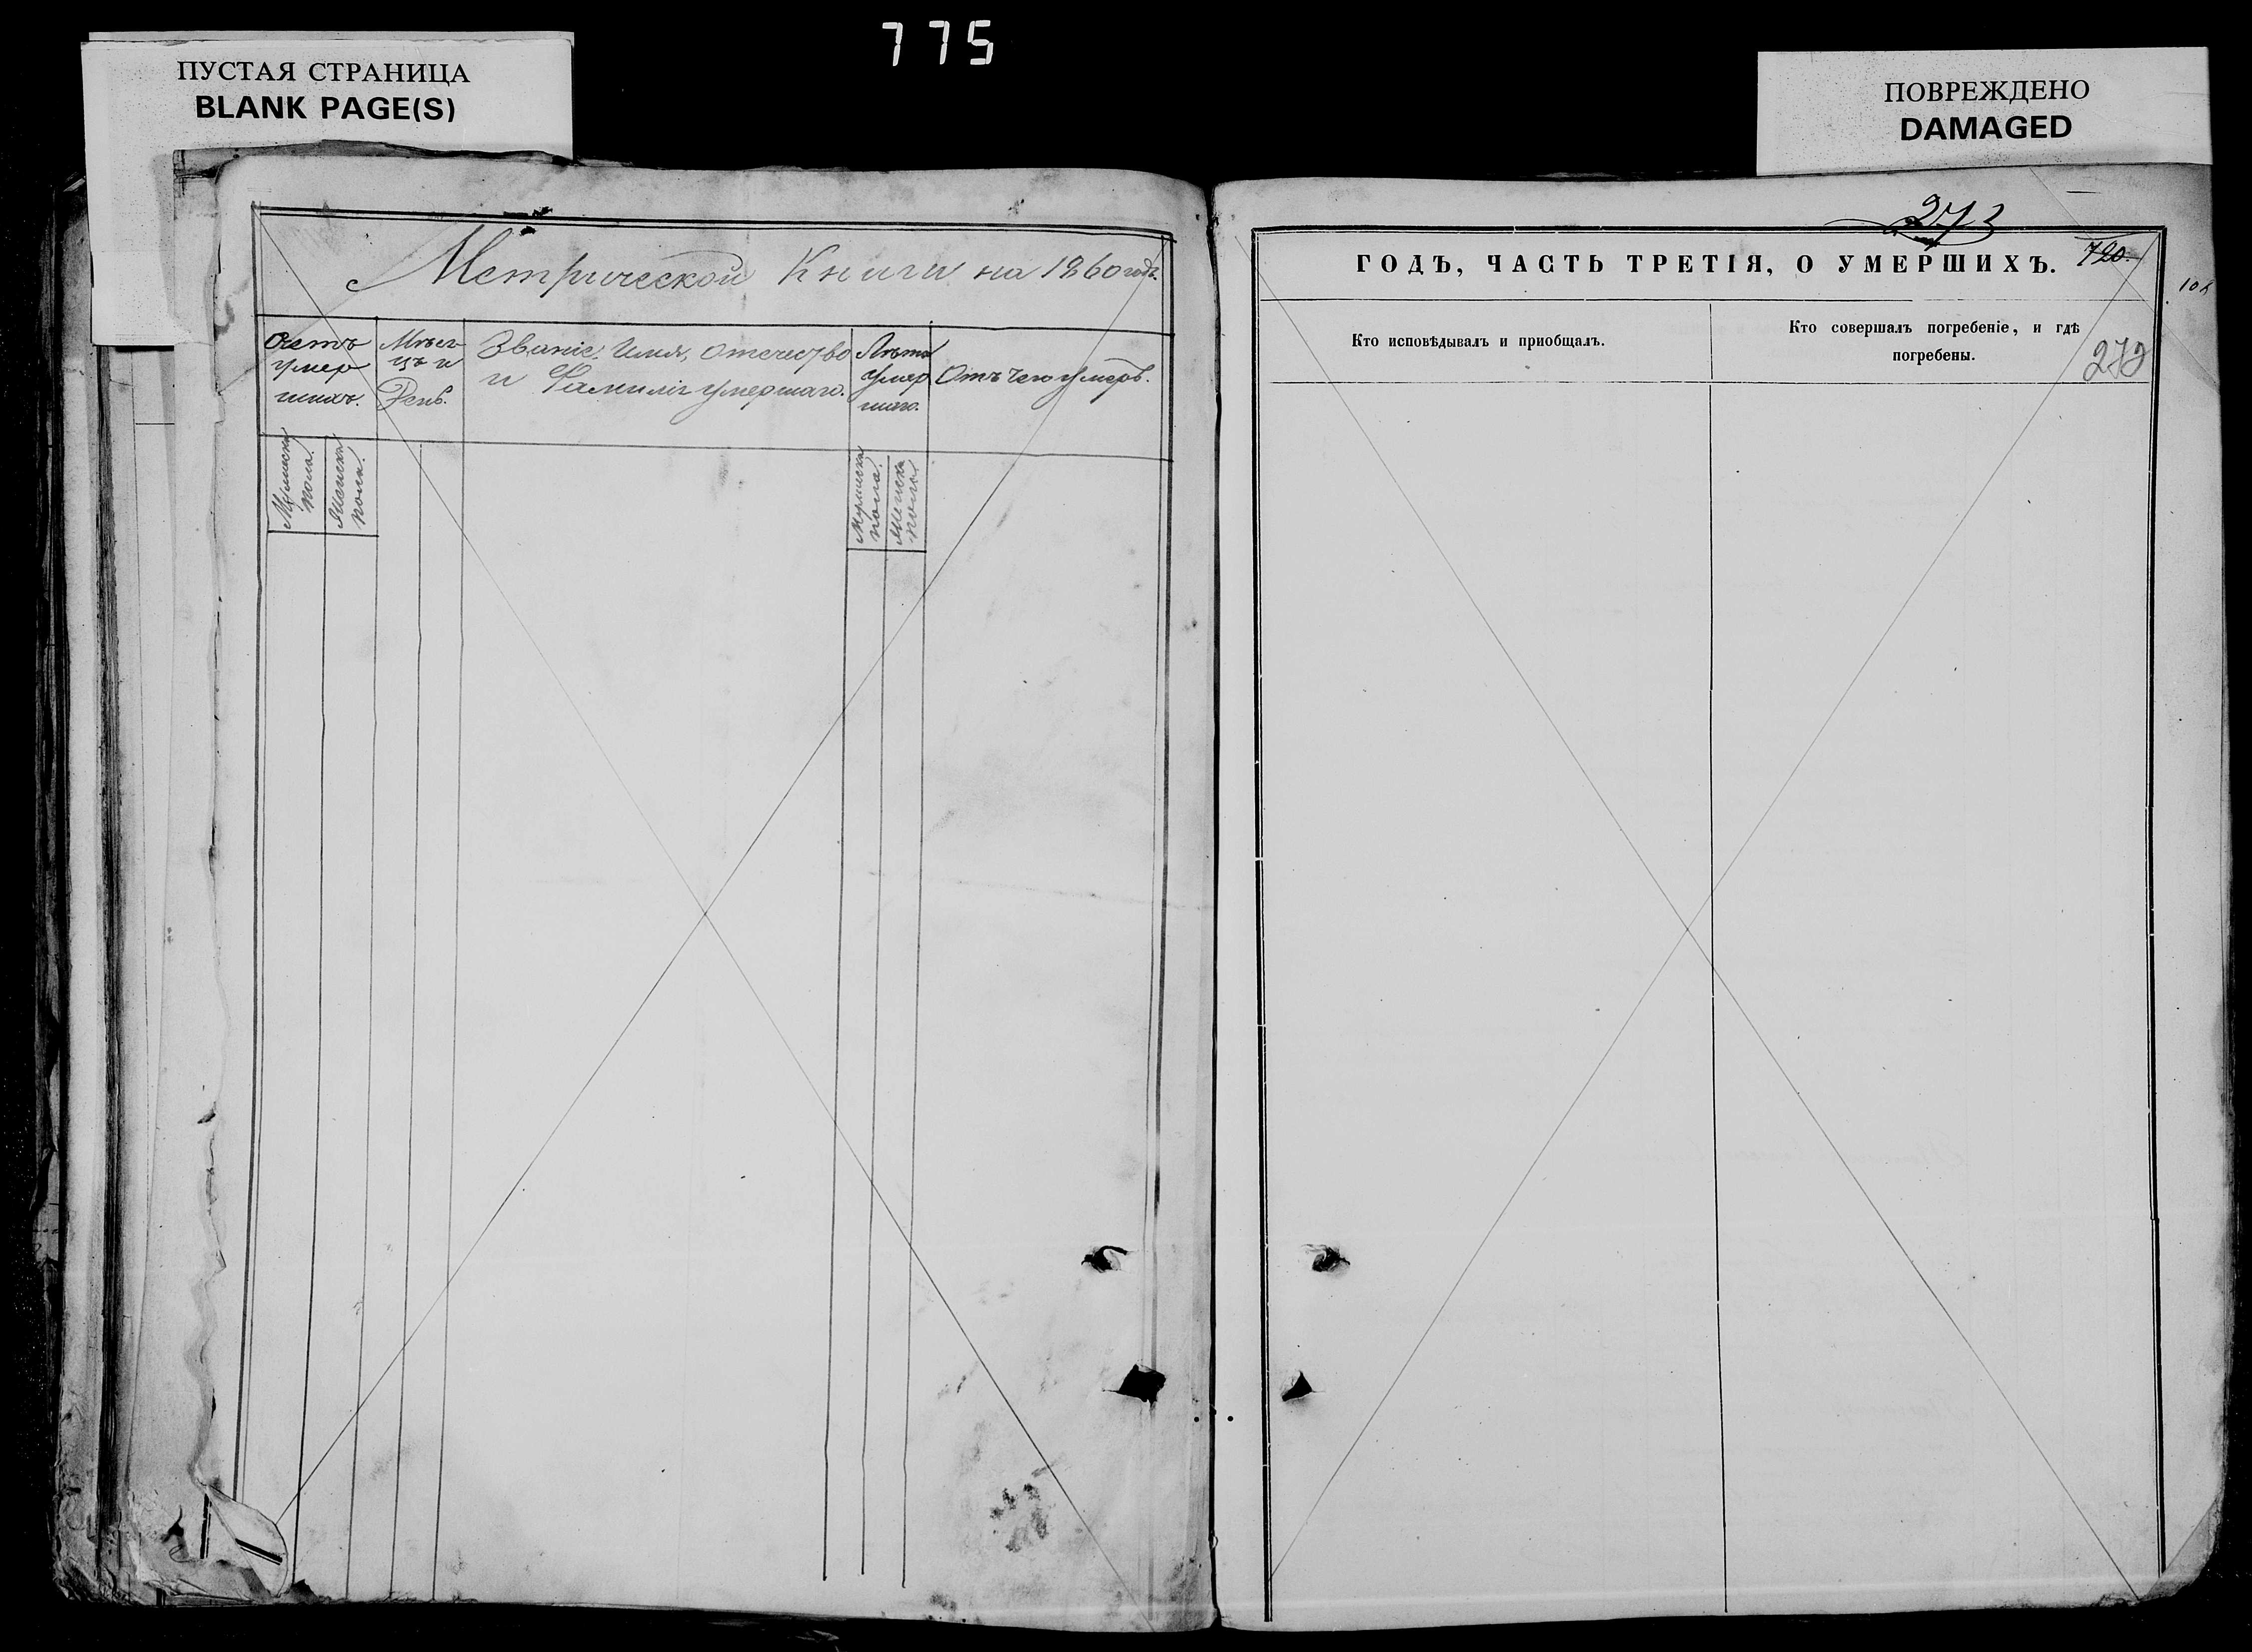 775
ПУСТАЯ СТРАНИЦА
BLANK PAGE(S)
ПОВРЕЖДЕНО
DAMAGED
Метрической Книги на 1860 годъ.
Счетъ
умер
шихъ.
Мѣся
цъ и
День.
Званіе, Имя, отечество
и Фамилія умершаго.
Лѣта
умер
шаго.
Отъ чего умеръ.
Мужеска
пола.
Женска
пола.
Мужеска
пола.
Женска
пола.
273
ГОДЪ, ЧАСТЬ ТРЕТІЯ, О УМЕРШИХЪ.
720.
Кто исповѣдывалъ и приобщалъ.
Кто совершалъ погребеніе, и гдѣ
погребены.
272